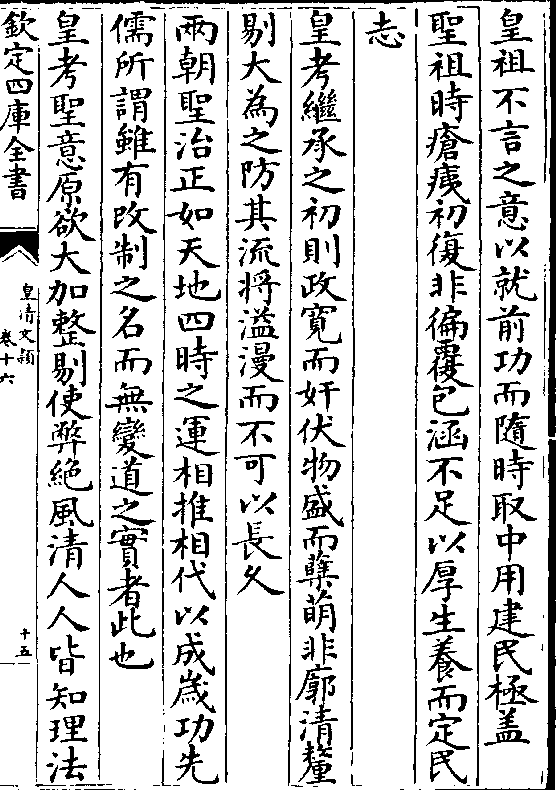 皇祖不言之意以就前功而隨時取中用建民極盖
聖祖時瘡痍初復非徧覆包涵不足以厚生養而定民
志
皇考繼承之初則政寛而奸伏物盛而孽萌非廓清釐
剔大為之防其流将溢漫而不可以長久
兩朝聖治正如天地四時之運相推相代以成嵗功先
儒所謂雖有改制之名而無變道之實者此也
皇考聖意原欲大加整剔使弊絶風清人人皆知理法
欽定四庫全書
皇清文頴
卷十六
十五